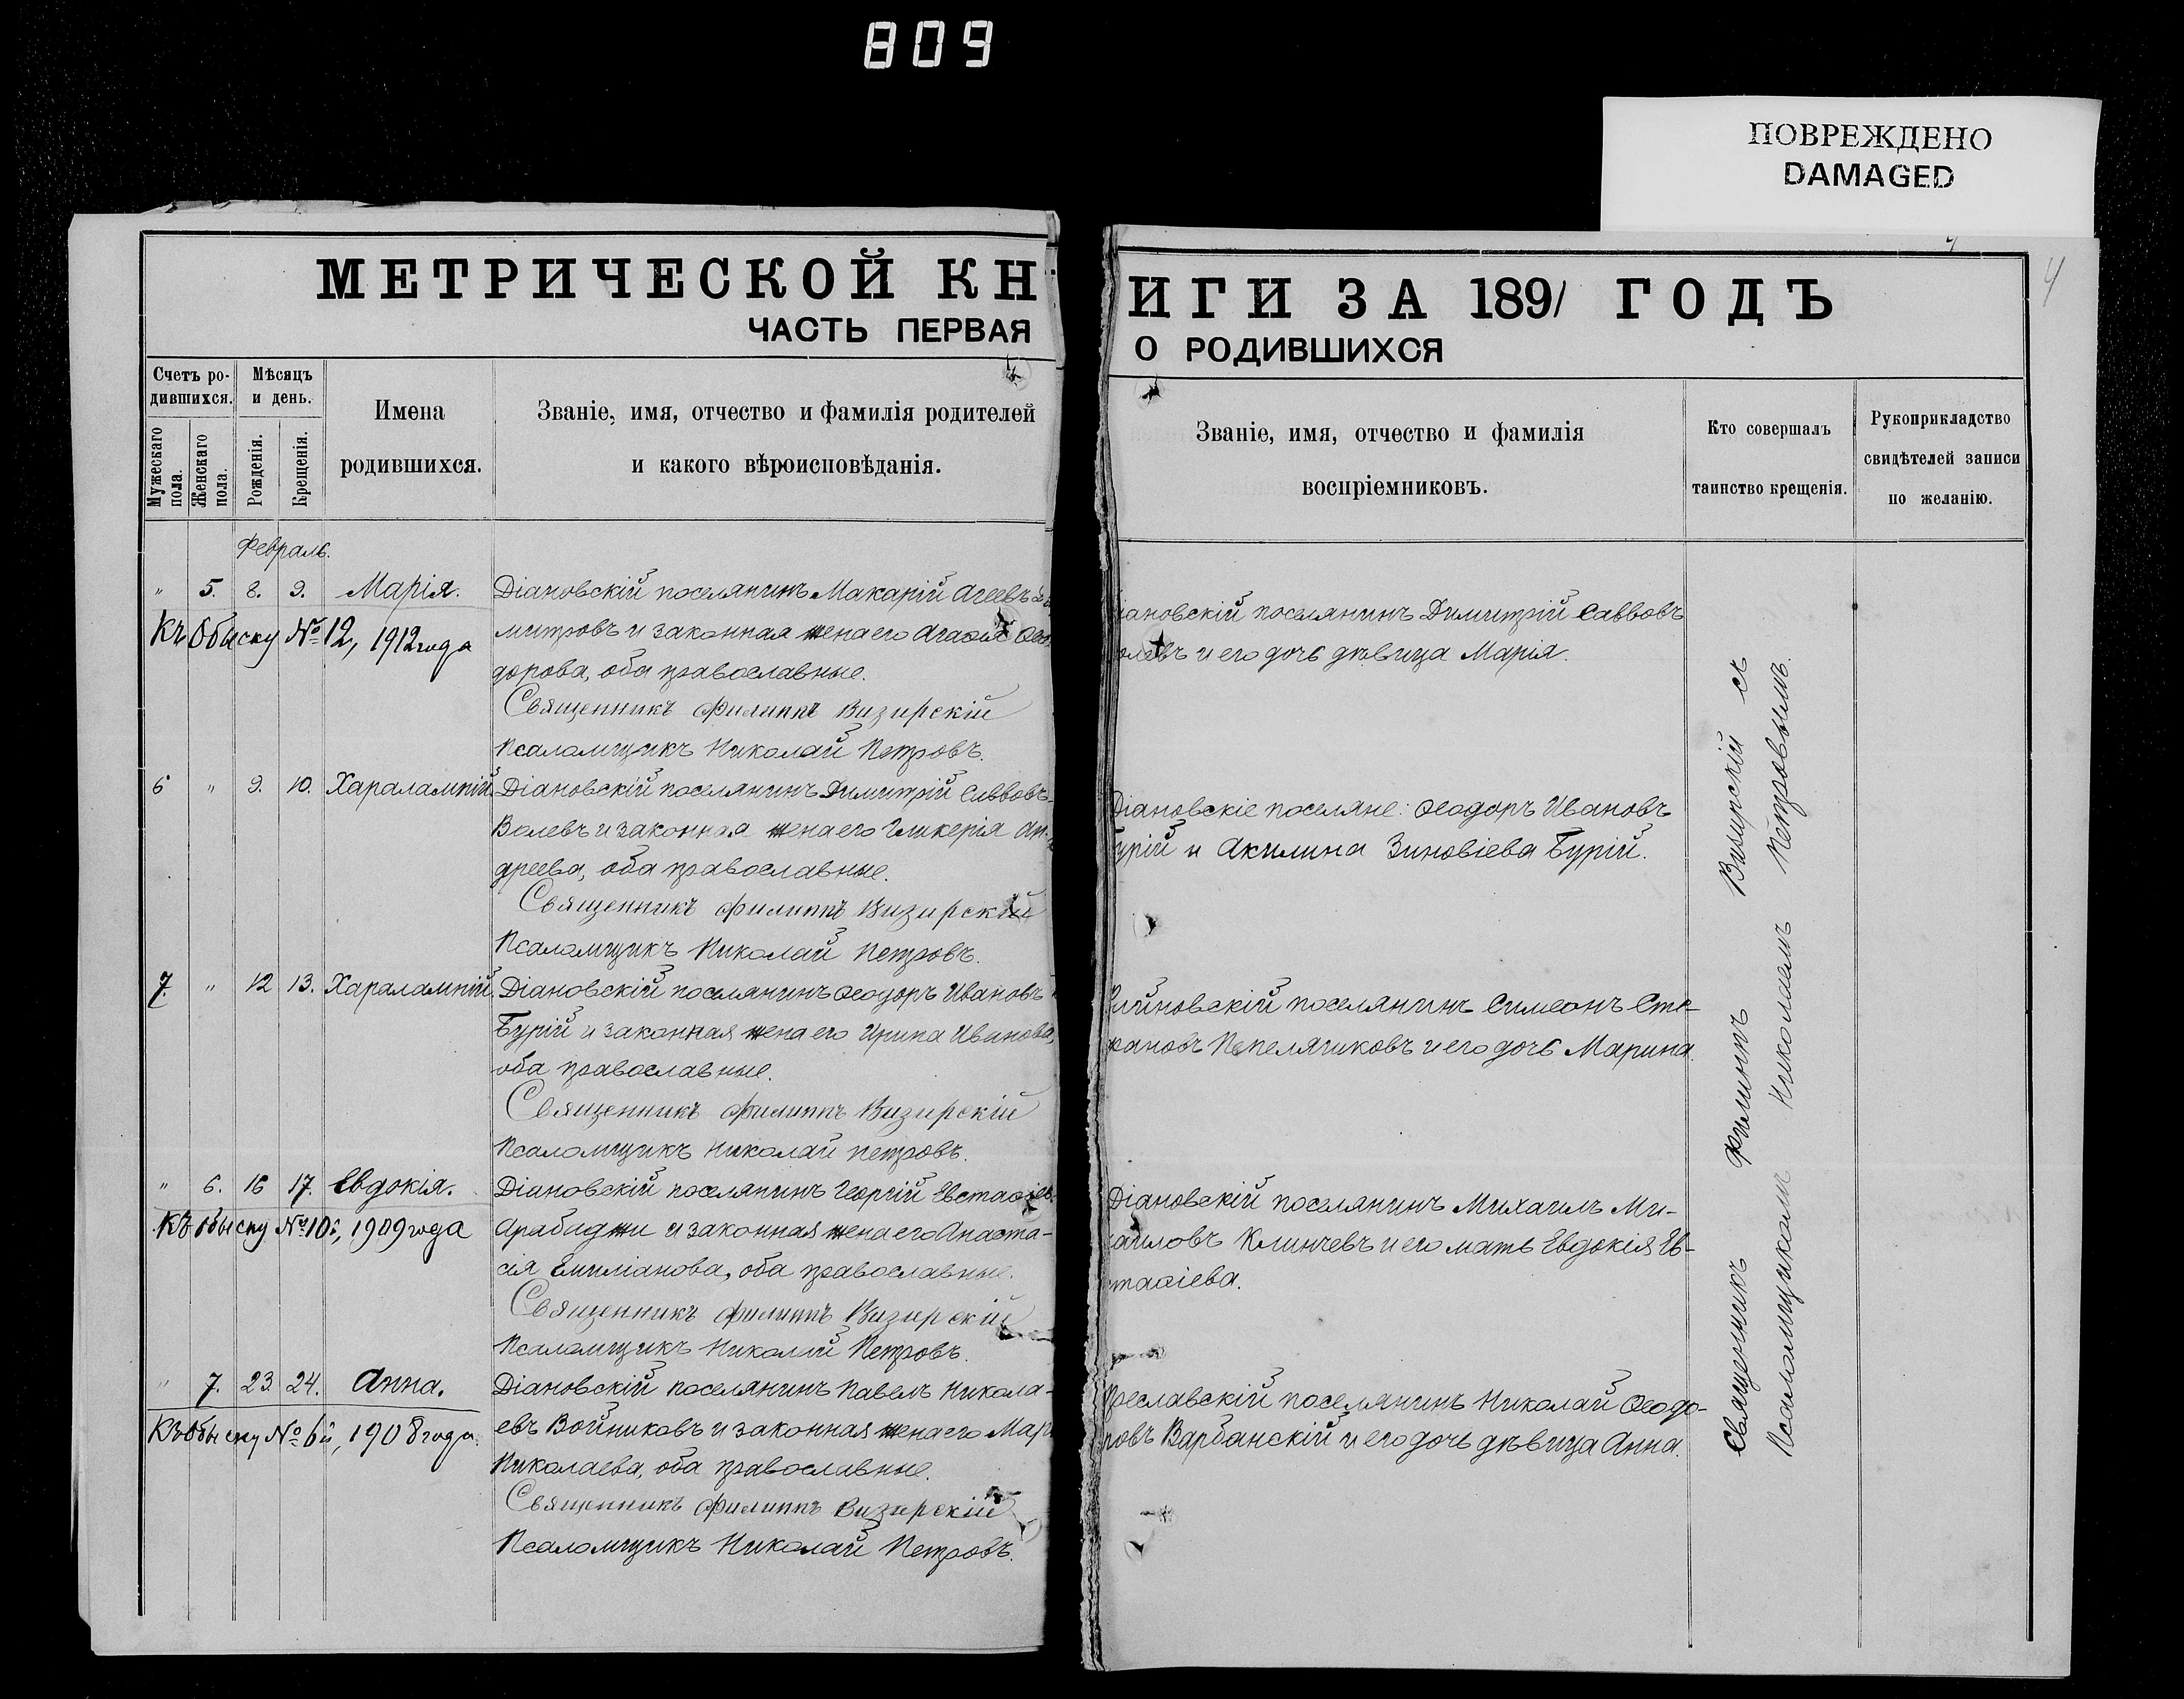 809
ПОВРЕЖДЕНО
DAMAGED
4
МЕТРИЧЕСКОЙ КН
ЧАСТЬ ПЕРВАЯ
Счетъ ро-
дившихся.
Мѣсяцъ
и день.
Имена
родившихся.
Званіе, имя, отчество и фамилія родителей
и какого вѣроисповѣданія.
Мужескаго
пола.
Женскаго
пола.
Рожденія.
Крещенія.
Февраль.
" 5. 8. 9. Марія. Діановскій поселянинъ Макарій Агеевъ
Къ Обыску № 12, 1912 года
митровъ и законная жена его Агафія Ѳео-
дорова, оба православные.
Священникъ Филиппъ Визирскій
Псаломщикъ Николай Петровъ.
6 " 9. 10. Харалампій. Діановскій поселянинъ Димитрій Саввовъ
Волевъ и законная жена его Гликерія Ан-
дреева, оба православные.
Священникъ Филиппъ Визирскій
Псаломщикъ Николай Петровъ.
7. " 12 13. Харалампій. Діановскій поселянинъ Ѳеодоръ Ивановъ
Бурій и законная жена его Ирина Иванова,
оба православные.
Священникъ Филиппъ Визирскій
Псаломщикъ Николай Петровъ.
" 6. 16 17. Евдокія. Діановскій поселянинъ Георгій Евстафіев
Къ обыску № 10, 1909 года
Арабаджи и законная жена его Анаста-
сія Емиліанова, оба православные.
Священникъ Филиппъ Визирскій
Псаломщикъ Николай Петровъ.
" 7. 23 24. Анна. Діановскій поселянинъ Павелъ Никола-
Къ Обыску № 6й, 1908 года.
евъ Войниковъ и законная жена его Мар
Николаева, оба православные.
Священникъ Филиппъ Визирскій
Псаломщикъ Николай Петровъ.
ИГИ ЗА 1891 ГОДЪ
О РОДИВШИХСЯ
Званіе, имя, отчество и фамилія
воспріемниковъ.
Кто совершалъ
таинство крещенія.
Рукоприкладство
свидѣтелей записи
по желанію.
іановскій поселянинъ Димитрій Саввовъ
олевъ и его дочь дѣвица Марія.
Діановскіе поселяне: Ѳеодоръ Ивановъ
урій и Акилина Зиновіева Бурій.
поселянинъ Симеонъ Сте-
фановъ Пепеляшковъ и его дочь Марина.
Діановскій поселянинъ Михаилъ Ми-
хаиловъ Клинчевъ и его мать Евдокія Ев-
стафіева.
Преславскій поселянинъ Николай Ѳеодо-
ровъ Варбанскій и его дочь дѣвица Анна.
Священникъ Филиппъ Визирскій съ
Псаломщикомъ Николаемъ Петровымъ.